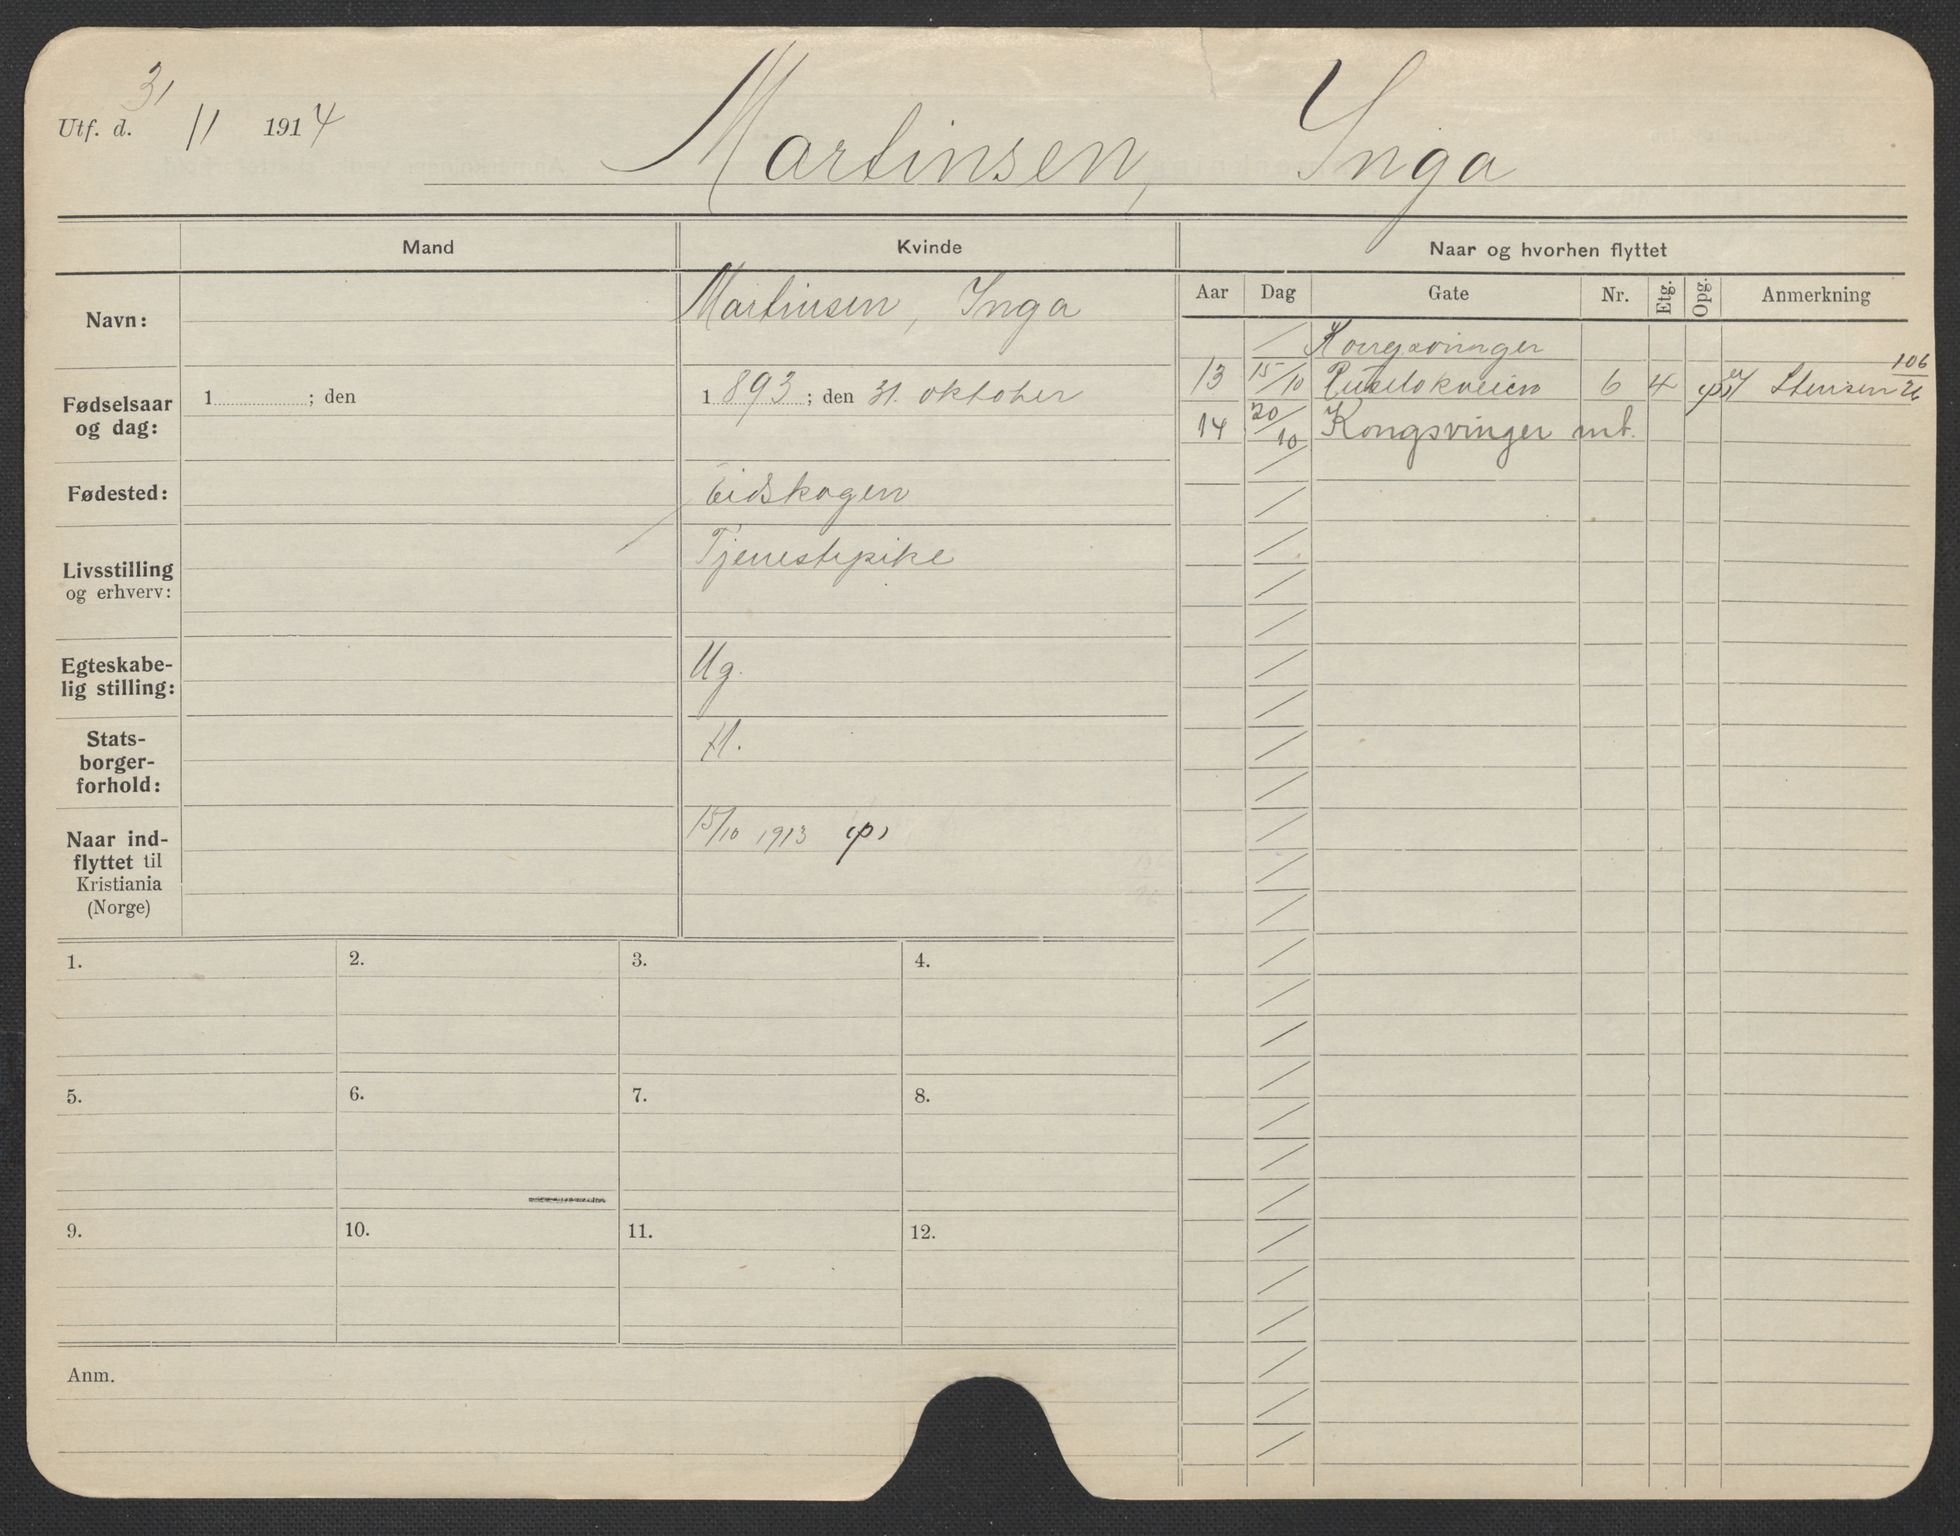 Utf. d. 3/11 1914
Martinsen, Inga
Mand
Kvinde
Naar og hvorhen flyttet
Navn:
Martinsen, Inga
Fødselsaar og dag:
1 ; den
1893; den 31. oktober
Fødested:
Eidskogen
Livsstilling og erhverv:
Tjenestepike
Egteskabe-
lig stilling:
Ug.
Stats-
borger-
forhold:
N.
Naar ind-
flyttet til
Kristiania
(Norge)
15/10 1913 (p)
Aar Dag Gate Nr. Etg. Opg. Anmerkning
Kongsvinger
13 15/10 Ruselokveien 6 4 Stensen 106/26
14 20/10 Kongsvinger mt.
1. 2. 3. 4.
5. 6. 7. 8.
9. 10. 11. 12.
Anm.